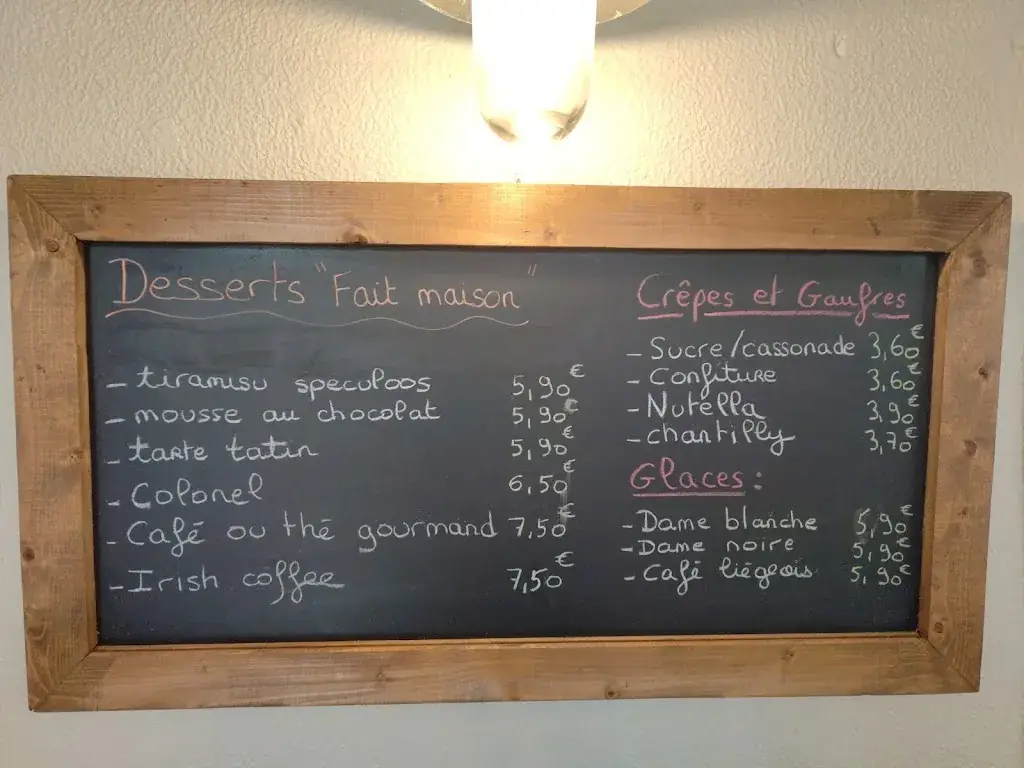 Desserts "Fait maison"
- tiramisu speculoos 5,90€
- mousse au chocolat 5,90€
- tarte tatin 5,90€
- Colonel 6,50€
- Café ou thé gourmand 7,50€
- Irish coffee 7,50€
Crêpes et Gaufres
- Sucre/cassonade 3,60€
- Confiture 3,60€
- Nutella 3,90€
- chantilly 3,70€
Glaces :
- Dame blanche 5,90€
- Dame noire 5,90€
- Café liégeois 5,90€